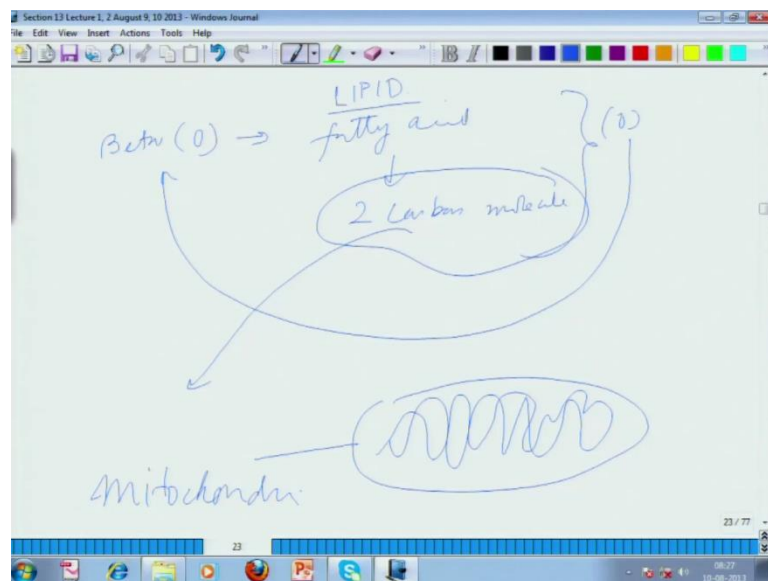 Section 13 Lecture 1, 2 August 9, 10 2013 - Windows Journal
File Edit View Insert Actions Tools Help
B I
LIPID
Beta (0) → fatty acid } (0)
2 Carbon molecule
Mitochondri
23 / 77
23
08:27
10-08-2013